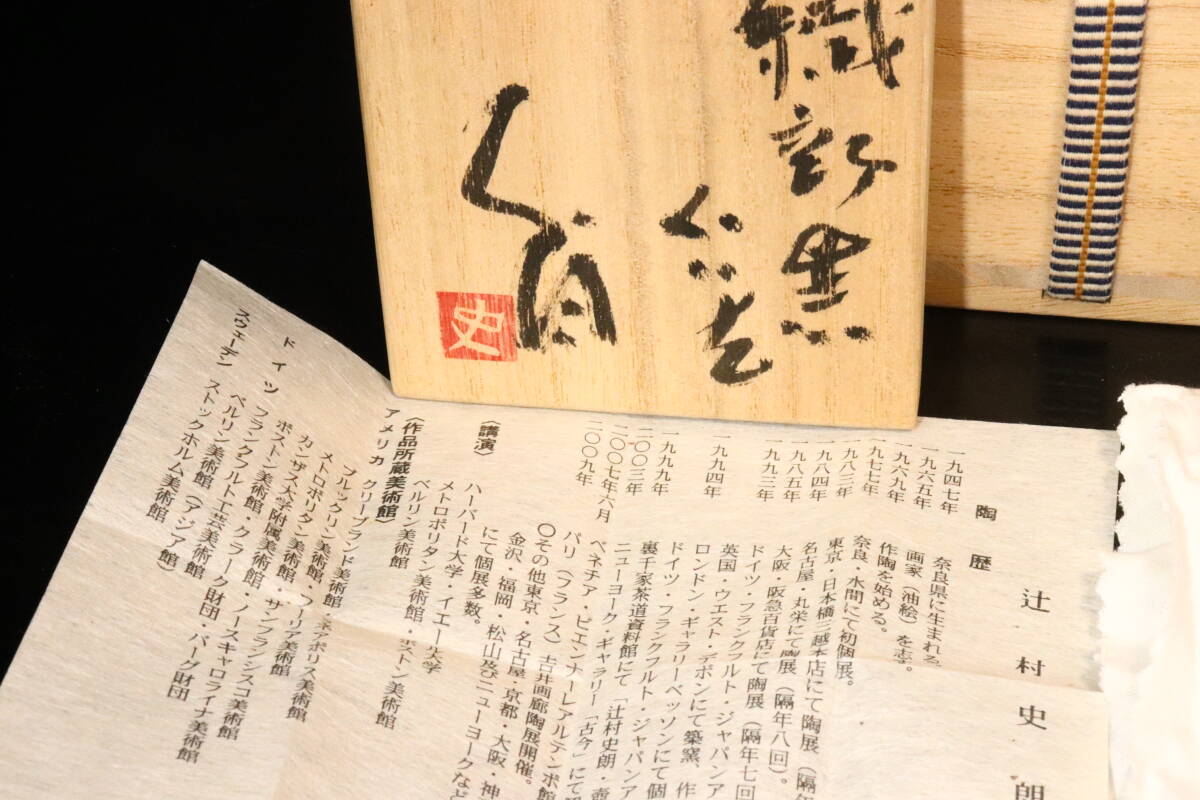 織部黒
ぐい呑
史
陶歴
辻村史朗
一九四七年 奈良県に生まれる
一九六五年 画家(油絵)を志
一九六九年 作陶を始める。
一九七七年 奈良、水間にて初個展。
一九八三年 東京・日本橋三越本店にて陶展(隔年
一九八四年 名古屋・丸栄にて陶展(隔年八回)。
一九八五年 大阪・阪急百貨店にて陶展(隔年七回
一九九三年 ドイツ・フランクフルト・ジャパンア
英国・ウエスト・デボンにて築窯、作
一九九四年 ロンドン・ギャラリーベッソンにて個
ドイツ・フランクフルト・ジャパンア
一九九九年 裏千家茶道資料館にて「辻村史朗・壺
二〇〇三年 ニューヨーク・ギャラリー「古今」にて
二〇〇七年六月 ベネチア・ビエンナーレアルテンポ館
二〇〇九年 パリ(フランス)吉井画廊陶展開催。
〇その他東京・名古屋・京都・大阪・神
金沢・福岡・松山及びニューヨークなど
にて個展多数。
〈講演〉 ハーバード大学・イエール大学
メトロポリタン美術館・ボストン美術館
ベルリン美術館
〈作品所蔵美術館〉
アメリカ クリーブランド美術館
ブルックリン美術館・ミネアポリス美術館
メトロポリタン美術館・フリア美術館
カンザス大学附属美術館・サンフランシスコ美術館
ボストン美術館・クラーク財団・ノースキャロライナ美術館
ドイツ フランクフルト工芸美術館・バーグ財団
ベルリン美術館(アジア館)
スウェーデン ストックホルム美術館